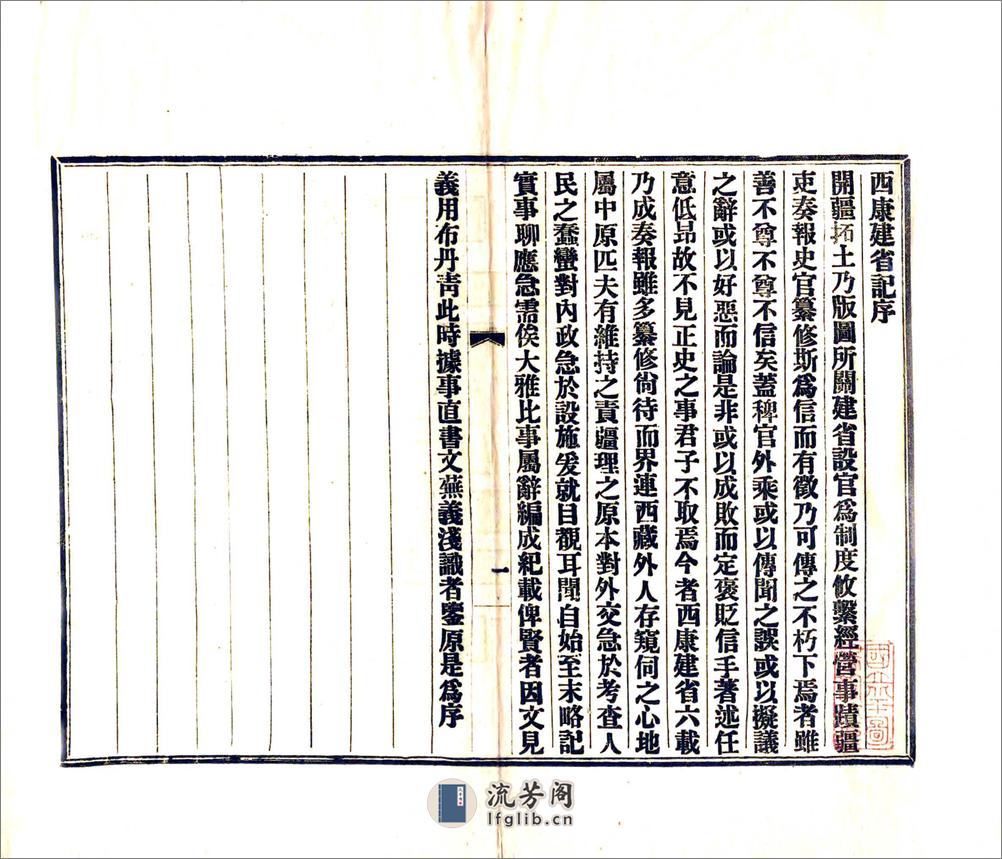 西康建省記序
開疆拓土乃版圖所關建省設官爲制度攸繫經營事蹟疆
吏奏報史官纂修斯爲信而有徵乃可傳之不朽下焉者雖
善不尊不尊不信矣蓋稗官外乘或以傳聞之誤或以擬議
之辭或以好惡而論是非或以成敗而定褒貶信手著述任
意低昻故不見正史之事君子不取焉今者西康建省六載
乃成奏報雖多纂修尙待而界連西藏外人存窺伺之心地
屬中原匹夫有維持之責疆理之原本對外交急於考查人
民之蠢蠻對內政急於設施爰就目覩耳聞自始至末略記
實事聊應急需俟大雅比事屬辭編成紀載俾賢者因文見
一
義用布丹靑此時據事直書文蕪義淺識者鑒原是爲序
流芳阁
lfglib.cn